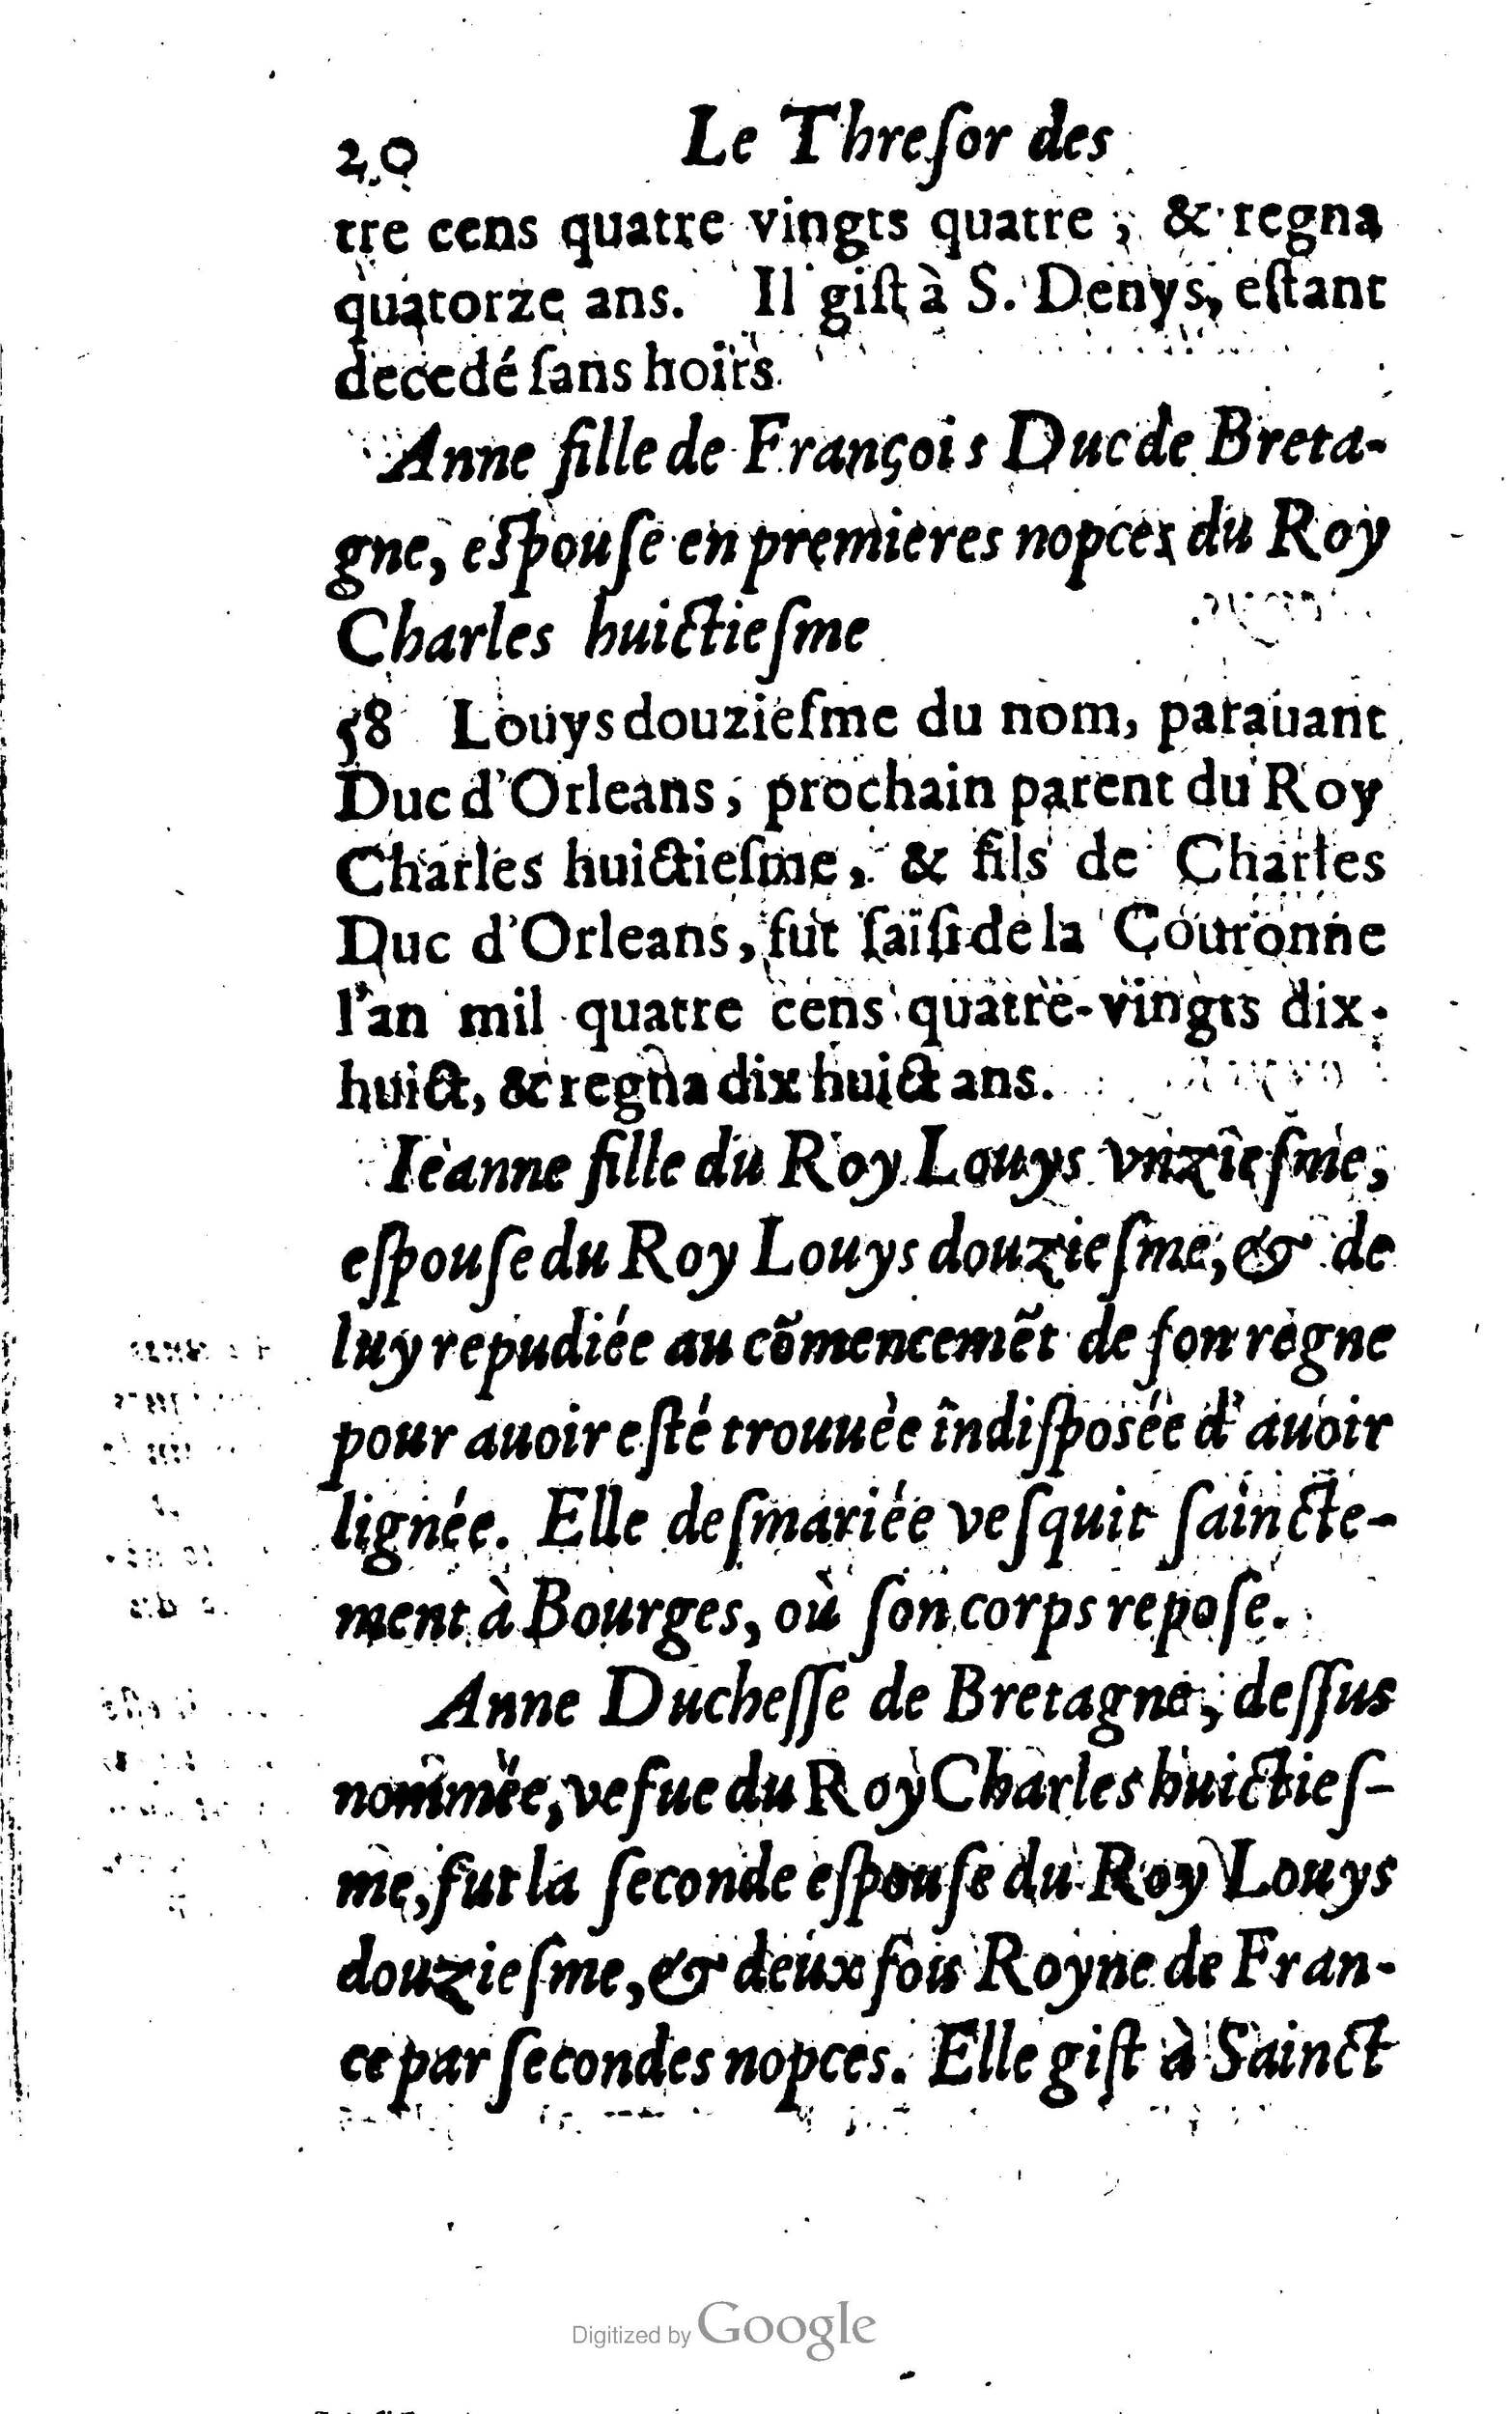 20 Le Threſor des
tre cens quatre vingts quatre ; & regna
quatorze ans. Il giſt à S. Denys, eſtant
decedé ſans hoirs.
Anne fille de François Duc de Breta-
gne, eſpouſe en premieres nopces du Roy
Charles huictieſme
58 Louys douzieſme du nom, parauant
Duc d'Orleans, prochain parent du Roy
Charles huictieſme, & fils de Charles
Duc d'Orleans, fut ſaiſi de la Couronne
l'an mil quatre cens quatre-vingts dix-
huict, & regna dix huict ans.
Ieanne fille du Roy Louys vnzieſme,
eſpouſe du Roy Louys douzieſme, & de
luy repudiée au cõmencemẽt de ſon regne
pour auoir eſté trouuée indiſposée d'auoir
lignée. Elle deſmariée veſquit ſaincte-
ment à Bourges, où ſon corps repoſe.
Anne Ducheſſe de Bretagne, deſſus
nommée, vefue du Roy Charles huictieſ-
me, fut la ſeconde eſpouſe du Roy Louys
douzieſme, & deux fois Royne de Fran-
ce par ſecondes nopces. Elle giſt à Sainct
Digitized by Google